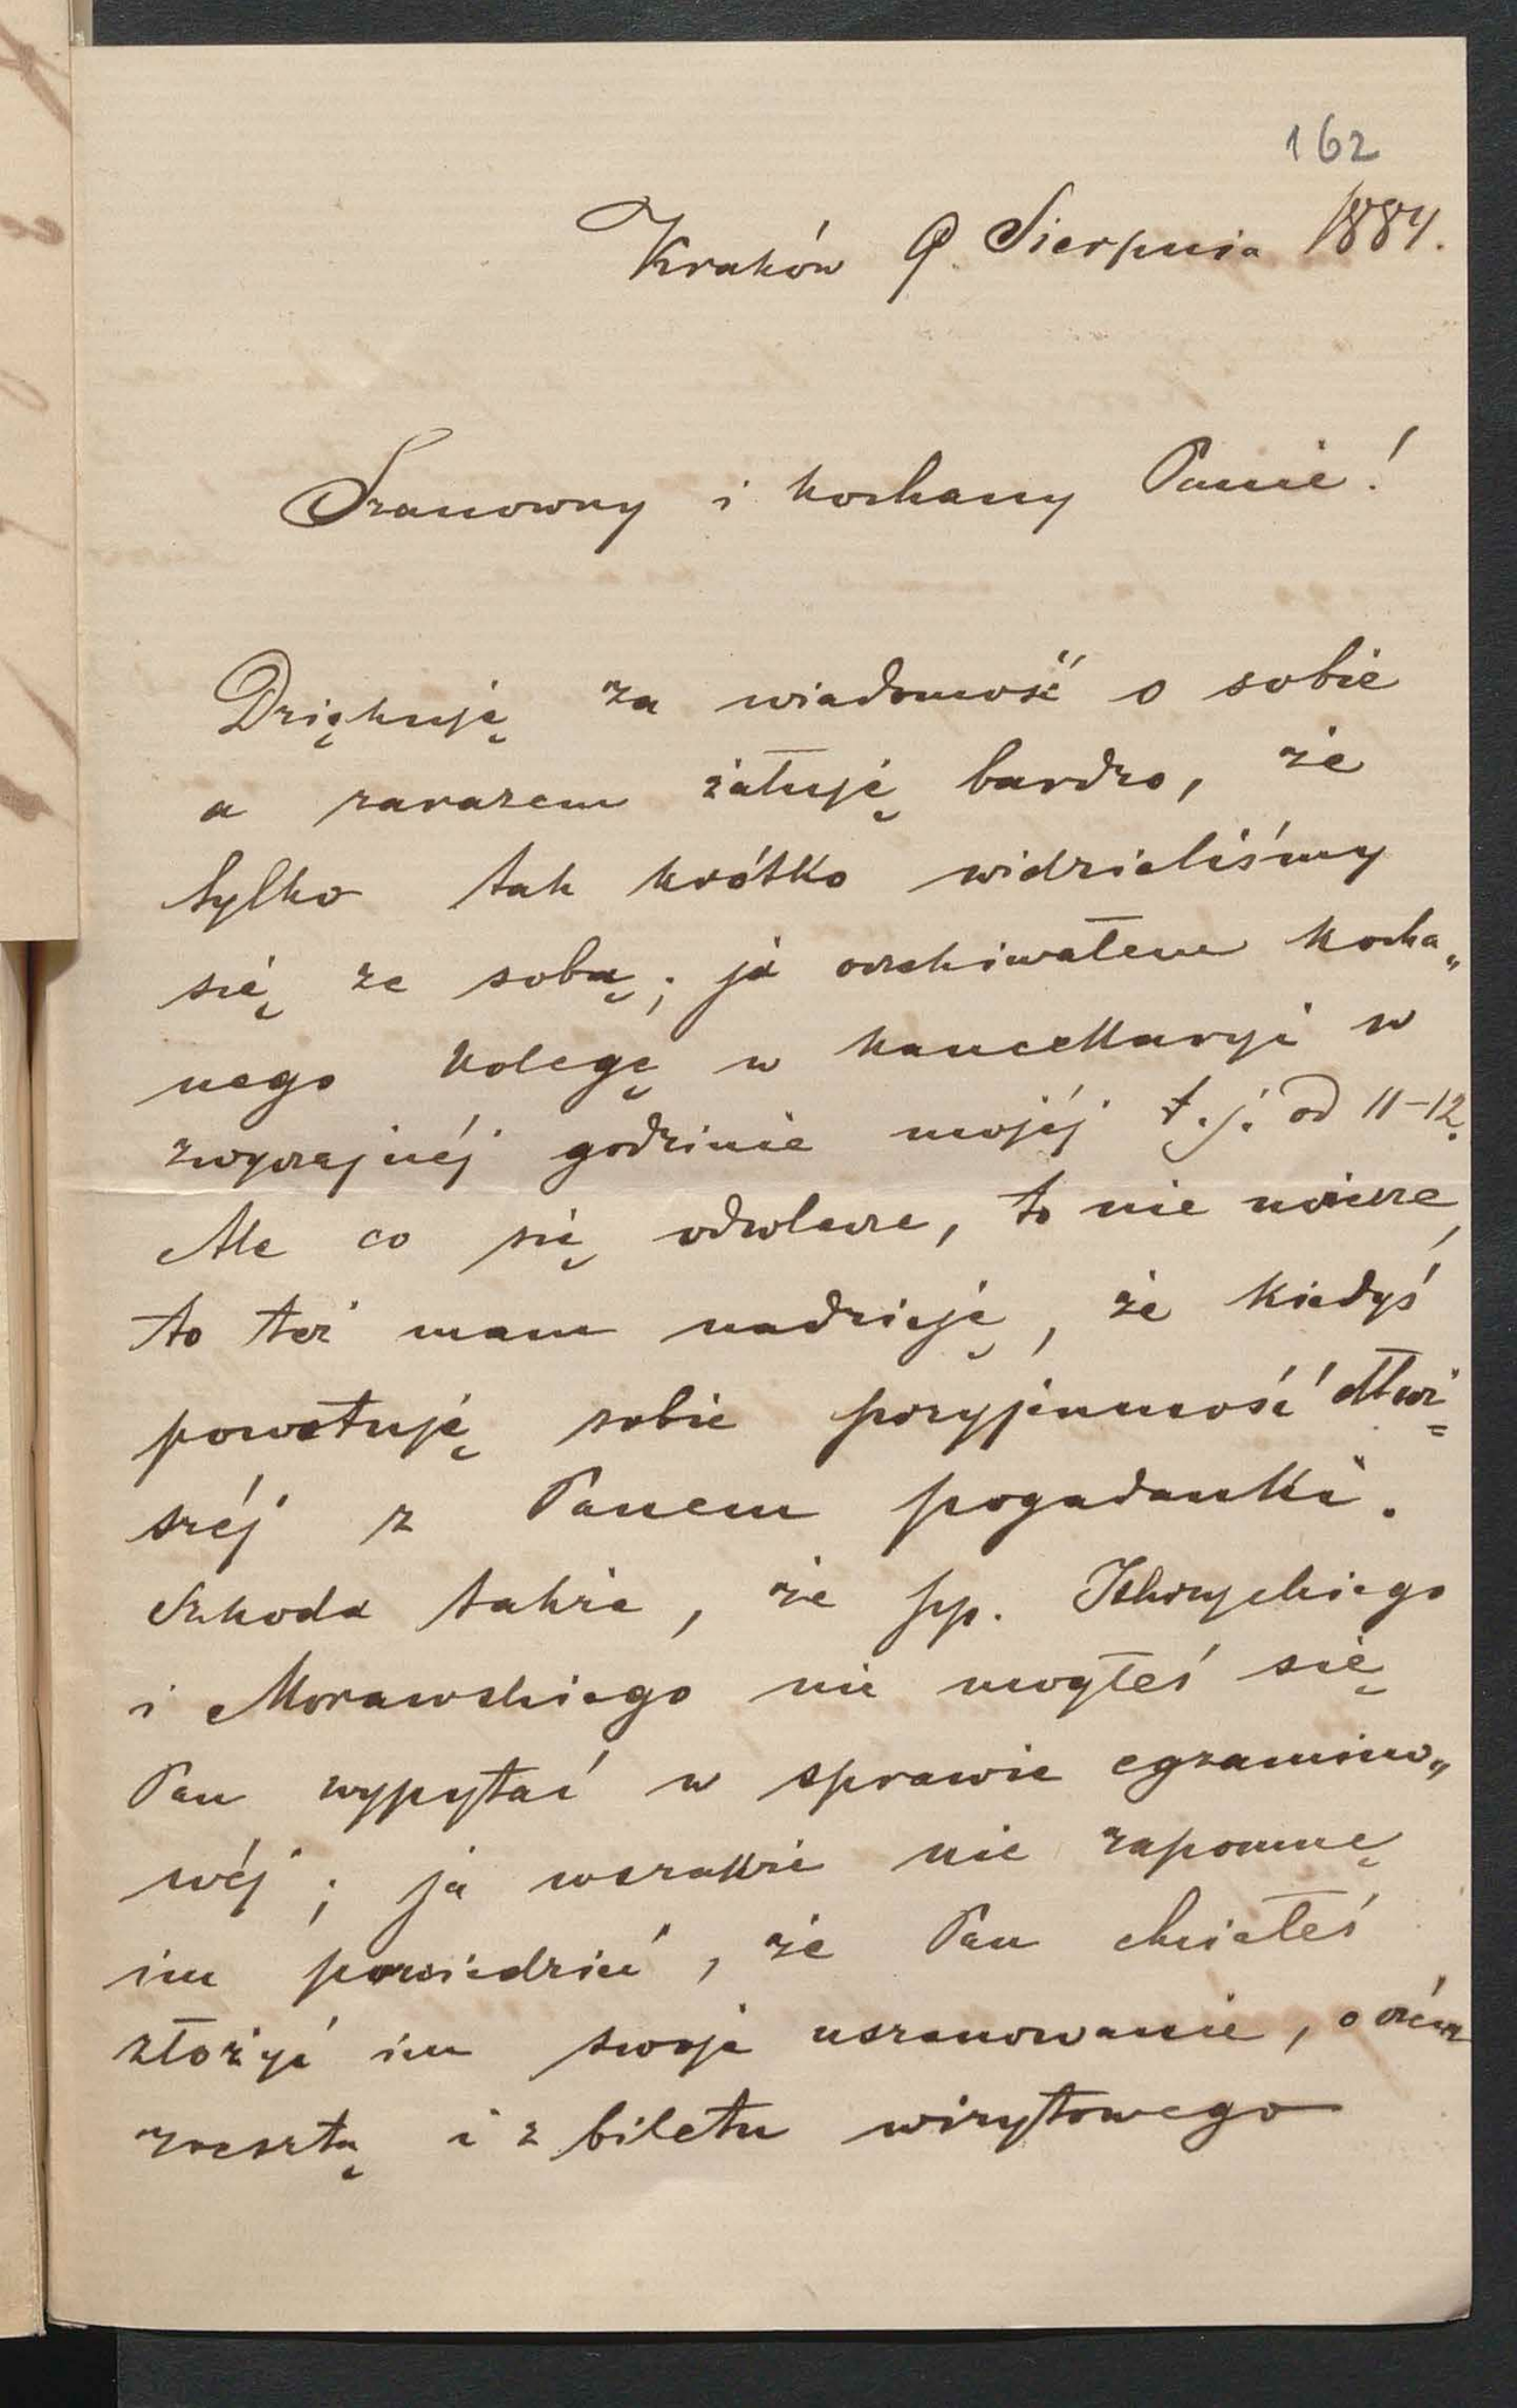 162
Kraków 9. Sierpnia 1884.
Szanowny i kochany Panie!
Dziękuję za wiadomość o sobie
a zarazem żałuję bardzo, że
tylko tak krótko widzieliśmy
się ze sobą; ja oczekiwałem kocha„
nego kolegę w kancellaryi w
zwyczajnéj godzinie mojéj t. j. od 11-12.
Ale co się odwlecze, to nie uciecze,
to też mam nadzieję, że kiedyś
powetuję sobie przyjemność dłuż=
széj z Panem pogadanki.
Szkoda także, że pp.
i Morawskiego nie mogłeś się
Pan wypytać w sprawie egzamino„
wéj; ja wszakże nie zapomnę
im powiedzieć, że Pan chciałeś
złożyć im swoje uszanowanie, o czém
zresztą i z biletu wizytowego